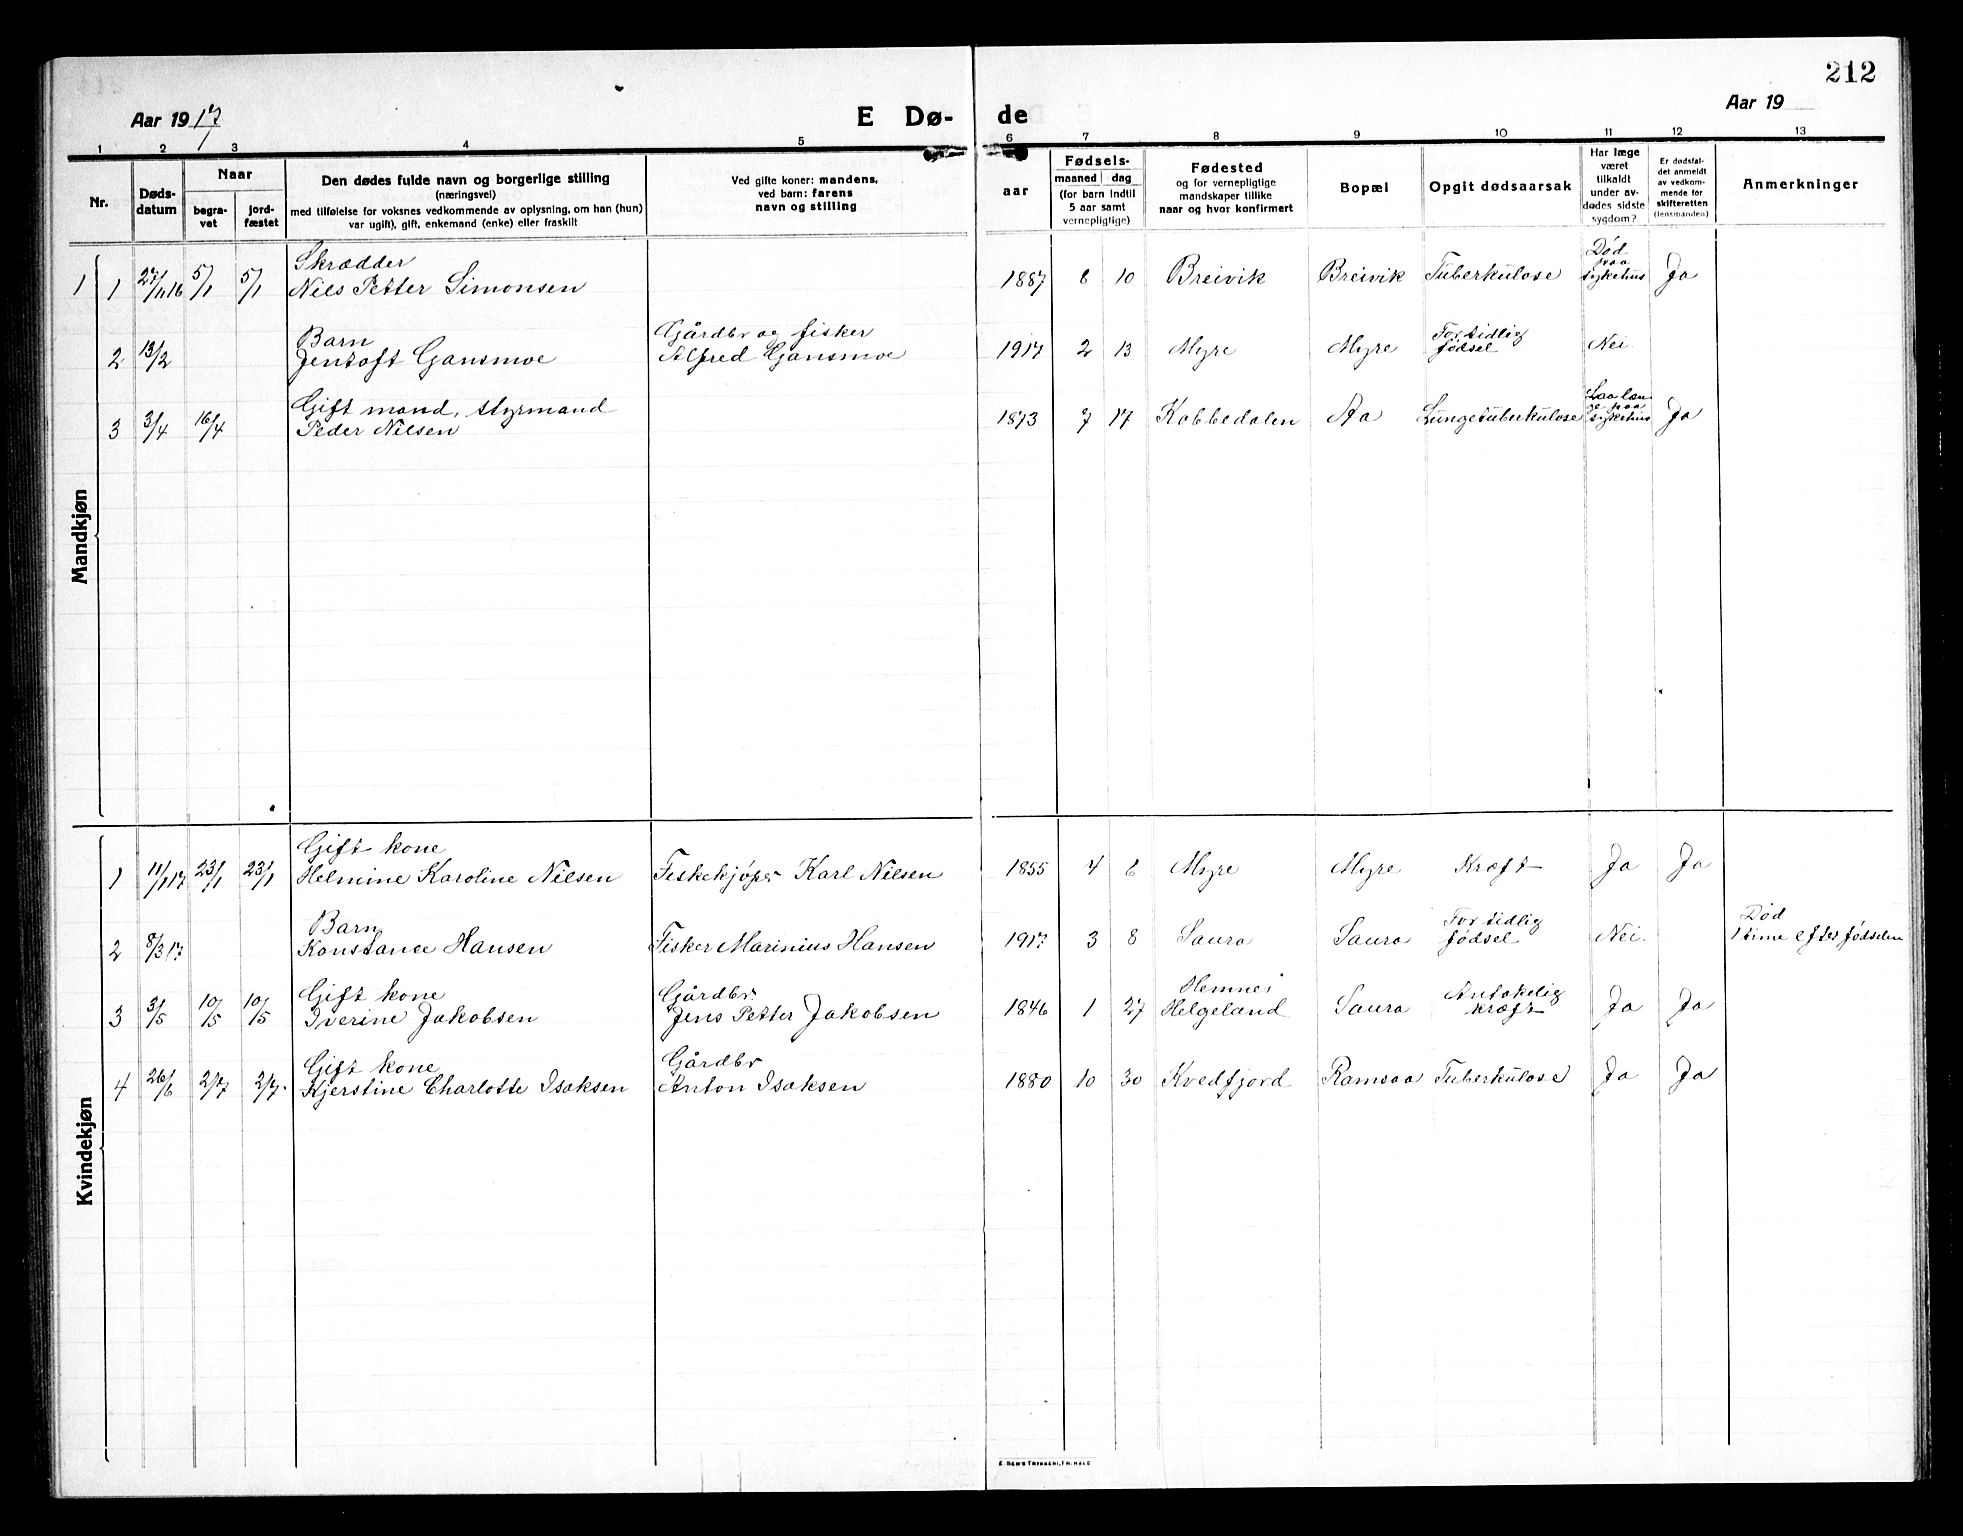 212
Aar 1917 E Dø- de Aar 19
1 2 3 4 5 6 7 8 9 10 11 12 13
Nr.
Døds-
datum
Naar
begra-
vet
jord-
fæstet
Den dødes fulde navn og borgerlige stilling
(næringsvei)
med tilføielse for voksnes vedkommende av oplysning, om han (hun)
var ugift), gift, enkemand (enke) eller fraskilt
Ved gifte koner: mandens,
ved barn: farens
navn og stilling
aar
Fødsels-
maaned dag
(for barn indtil
5 aar samt
vernepligtige)
Fødested
og for vernepligtige
mandskaper tillike
naar og hvor konfirmert
Bopæl
Opgit dødsaarsak
Har læge
været
tilkaldt
under av-
dødes sidste
sygdom?
Er dødsfal-
det anmeldt
av vedkom-
mende for
skifteretten
(lensmanden)
Anmerkninger
Mandkjøn
Skrædder Død
paa
1 1 27/11 16 5/1 5/1 Nils Petter Simonsen 1887 8 10 Breivik Breivik Tuberkulose sykehus Ja
Barn Gårdbr og fisker For tidlig
2 13/2 Jentoft Gansmoe Alfred Gansmoe 1917 2 13 Myre Myre fødsel Nei
Gift mand, styrmand Laa læn
ge paa
3 3/4 16/4 Peder Nilsen 1873 7 17 Kobbedalen Aa Lungetuberkulose sykehus Ja
Kvindekjøn
Gift kone
1 11/1 17 23/1 23/1 Helmine Karoline Nilsen Fiskekjøper Karl Nilsen 1855 4 6 Myre Myre Kræft Ja Ja
Barn For tidlig Død
2 8/3 17 Konstance Hansen Fisker Marinius Hansen 1917 3 8 Saura Saura fødsel Nei. 1 time efter fødselen
Gift kone Gårdbr. Hemnes Antakelig
3 3/5 10/5 10/5 Iverine Jakobsen Jens Petter Jakobsen 1846 1 27 Helgeland Saura kræft Ja Ja
Gift kone Gårdbr
4 26/6 2/7 2/7 Kjerstine Charlotte Isaksen Anton Isaksen 1880 10 30 Kvedfjord Ramsaa Tuberkulose Ja Ja